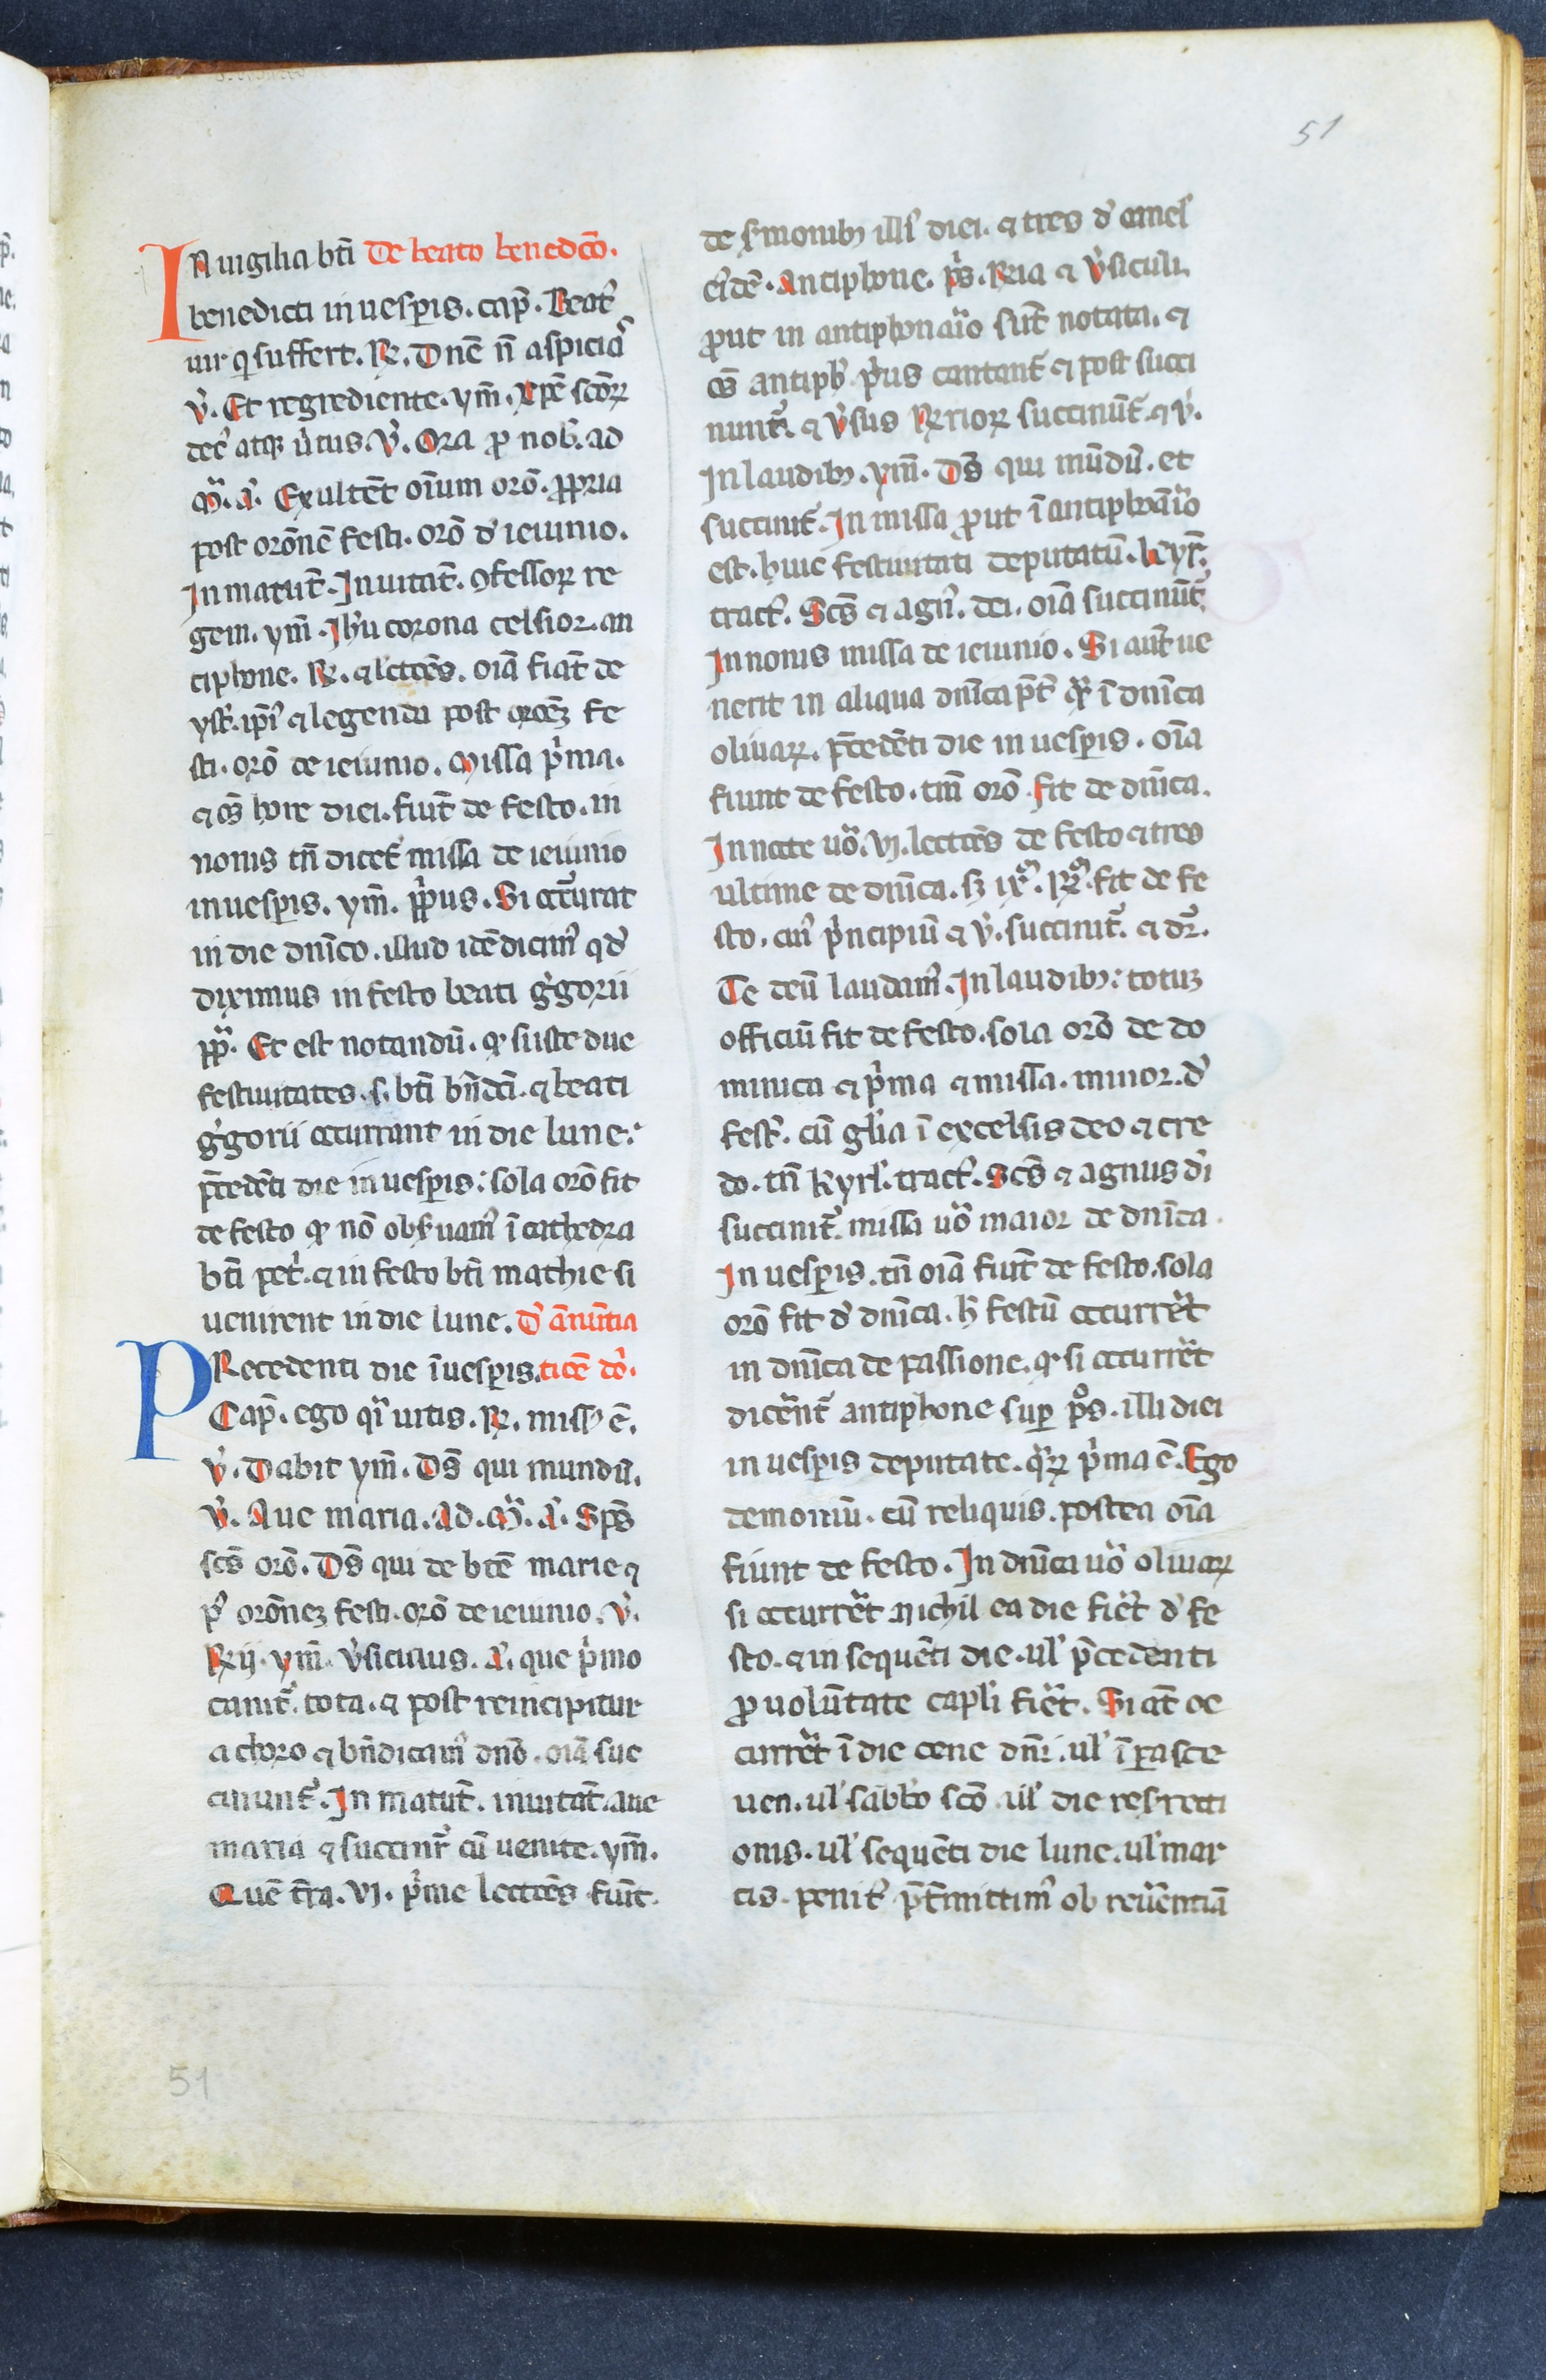 51
IN uigilia bti De beato benedco͂.
benedicti in uesꝑis. cap̃. Beatꝰ
uir qͥ suffert. ℟. Dnẽ ñ aspicias
v̓. Et regrediente. ym̃. Xpẽ scõꝝ
decꝰ atqꝫ ũtus. v̓. Ora ꝓ nob̓. ad
m̃. a᷑. Exultẽt oĩum orõ. ꝓpria
post orõnẽ festi. orõ d̓ ieiunio.
In matut̃. Inuitat̃. ꝯfessoꝝ re
gem. ym̃. Ihũ corona celsior. an
tiphone. ℟. ⁊ lectões. oĩa fiãt de
yst̓. ipĩ ⁊ legenda post oroẽꝫ fe
sti. orõ de ieiunio. Missa pͥma.
⁊ oẽs hore diei. fiũt de festo. in
nonis tñ dicet᷑ missa de ieiunio
in uesꝑis. ym̃. ꝓpͥus. Si occurrat
in die dnĩco. illud idẽ dicimꝰ qd̓
diximus in festo beati gͥgorii
pp̃. Et est notandũ. ꝙ si iste due
festiuitates. s. bti bñdci. ⁊ beati
gͥgorii occurrant in die lune:
p̃cedẽti die in uesꝑis: sola orõ fit
de festo ꝙ nõ obẜuamꝰ ĩ cathedra
bti pet̓. ⁊ in festo bti mathie si
uenirent in die lune. D̓ ãnũtia
PRecedenti die ĩ uesꝑis. ticẽ dõ.
Cap̃. ego qͣi uitis. ℟. missꝰ ẽ.
v̓. Dabit ym̃. Ds̃ qui mundũ.
v̓. Aue maria. Ad. m̃. a᷑. Sps̃
scs̃ orõ. Ds̃ qui de btẽ marie ⁊
pꝰ orõneꝫ festi. orõ de ieiunio. v̓.
℟ij. ym̃. v̓siculus. a᷑. que pͥmo
canit᷑. tota. ⁊ post reincipitur
a choro ⁊ bñdicamꝰ dnõ. oĩa suc
cinunt᷑. In matut̃. inuitat̃. aue
maria ⁊ succinit᷑ cũ uenite. ym̃.
Quẽ t̃ra. VI. pͥme lectões fiũt.
de ẜmonibꝫ illiꝰ diei. ⁊ tres d̓ omel̓
eiꝰdẽ. Antiphone. ps̃. ℟ia ⁊ v̓siculi.
ꝓut in antiphonaͥio sũt notata. ⁊
oẽs antiph̓ pͥus cantant᷑ ⁊ post succi
nunt᷑. ⁊ v̓sus ℟rioꝝ succinũt᷑ ⁊ v̓.
In laudibꝫ. ym̃. Ds̃ qui mũdũ. et
succinit᷑. In missa ꝓut ĩ antiphonaͥio
est. huic festiuitati deputatũ. kyrl̓.
tract̓. Scs̃ ⁊ agnꝰ. dei. oĩa succinũt᷑
In nonis missa de ieiunio. Si aut̃ ue
nerit in aliqua dnĩca p̃t̓ qͣꝫ ĩ dnĩca
oliuaꝝ. p̃cedẽti die in uesꝑis. oĩa
fiunt de festo. tm̃ orõ fit de dnĩca.
In nocte uo̓. VI. lectões de festo ⁊ tres
ultime de dnĩca. sꝫ ixͫ. ℟ͫ. fit de fe
sto. cuiꝰ pͥncipiũ ⁊ v̓. succinit᷑. ⁊ dr̃.
Te deũ laudamꝰ. In laudibꝫ: totuꝫ
officiũ fit de festo. sola orõ de do
minica ⁊ pͥma ⁊ missa. minor. d̓
fest̓. cũ gl̃ia ĩ excelsis deo ⁊ cre
do. tñ kyrl̓. tract̓. Scs̃ ⁊ agnus di
succinit᷑. missa uo̓ maior de dnĩca.
In uesꝑis. tñ oĩa fiũt de festo. sola
orõ fit d̓ dnĩca. h̓ festũ occurrẽt
in dnĩca de passione. ꝙ si occurrẽt
dicẽnt᷑ antiphone suꝑ ps̃. illi diei
in uesꝑis deputate. qͣꝝ pͥma ẽ. Ego
demoniũ. cũ reliquis. postea oĩa
fiunt de festo. In dnĩca uo̓ oliuaꝝ
si occurrẽt nichil ea die fiẽt d̓ fe
sto. ⁊ in sequẽti die. ul̓ p̃cedenti
ꝓ uolũtate capl̓i fiẽt. Si at̃ oc
currẽt ĩ die cene dnĩ. ul̓ ĩ ꝑasce
uen. ul̓ sabb̓to scõ ul̓ die resͬrecti
onis. ul̓ sequẽti die lune. ul̓ mar
tis. penitꝰ p̃t̃mittimꝰ ob reũentiã
51